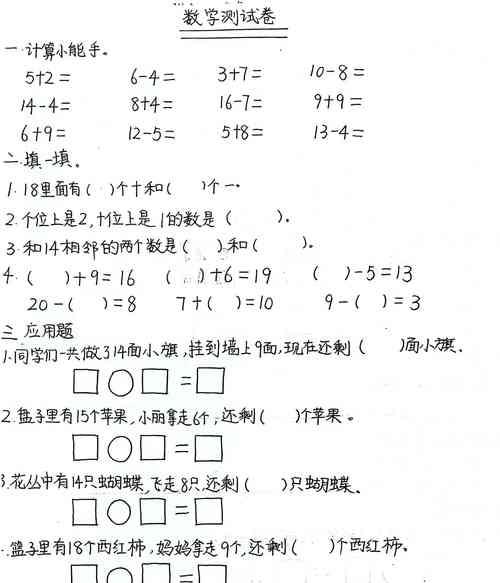 数学测试卷
一.计算小能手。
5+2= 6-4= 3+7= 10-8=
14-4= 8+4= 16-7= 9+9=
6+9= 12-5= 5+8= 13-4=
二.填一填。
1.18里面有( )个十和( )个一。
2.个位上是2,十位上是1的数是( )。
3.和14相邻的两个数是( )和( )。
4.( )+9=16 ( )+6=19 ( )-5=13
20-( )=8 7+( )=10 9-( )=3
三.应用题
1.同学们一共做了14面小旗,挂到墙上9面,现在还剩( )面小旗.
□○□=□
2.盘子里有15个苹果,小丽拿走6个,还剩( )个苹果。
□○□=□
3.花丛中有14只蝴蝶,飞走8只,还剩( )只蝴蝶.
□○□=□
.篮子里有18个西红柿,妈妈拿走9个,还剩( )个西红柿。
□○□=□